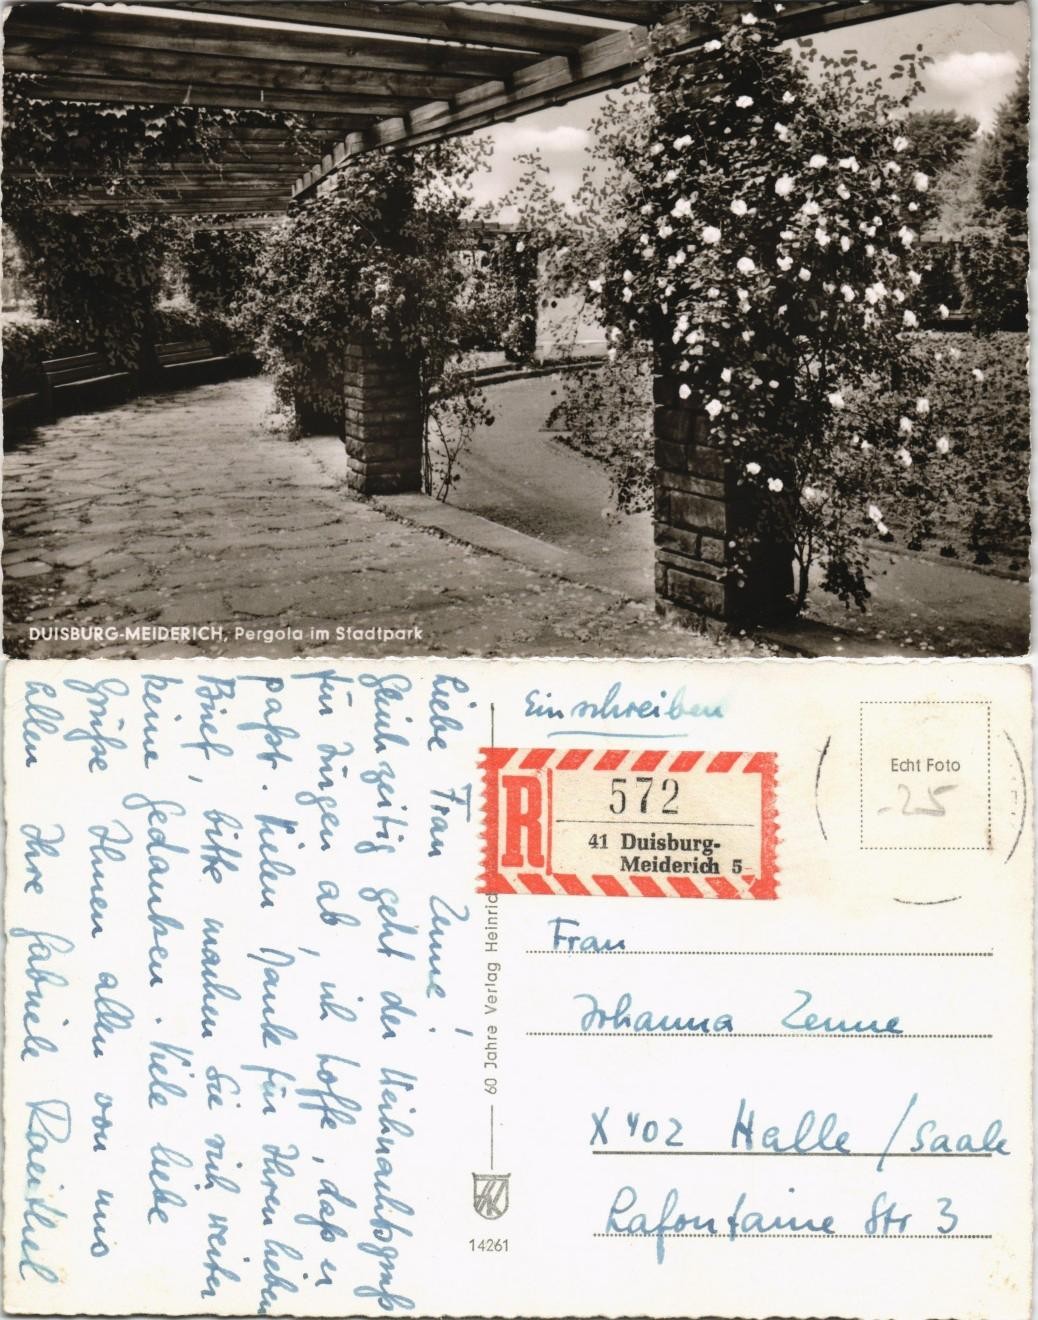 DUISBURG-MEIDERICH, Pergola im Stadtpark
Liebe Frau Zenne!
Gleichzeitig geht der Weihnachtsgruß
für Jürgen ab, ich hoffe, daß er
paßt. Vielen Dank für Ihren lieben
Brief, bitte machen Sie sich weiter
keine Gedanken. Viele liebe
Grüße Ihnen allen von uns
allen Ihre Gabriele
Einschreiben
R
572
41 Duisburg-
Meiderich 5
Echt Foto
-25
60 Jahre Verlag Heinric
14261
Frau
Johanna Zenne
X 402 Halle / Saale
Lafontaine Str 3